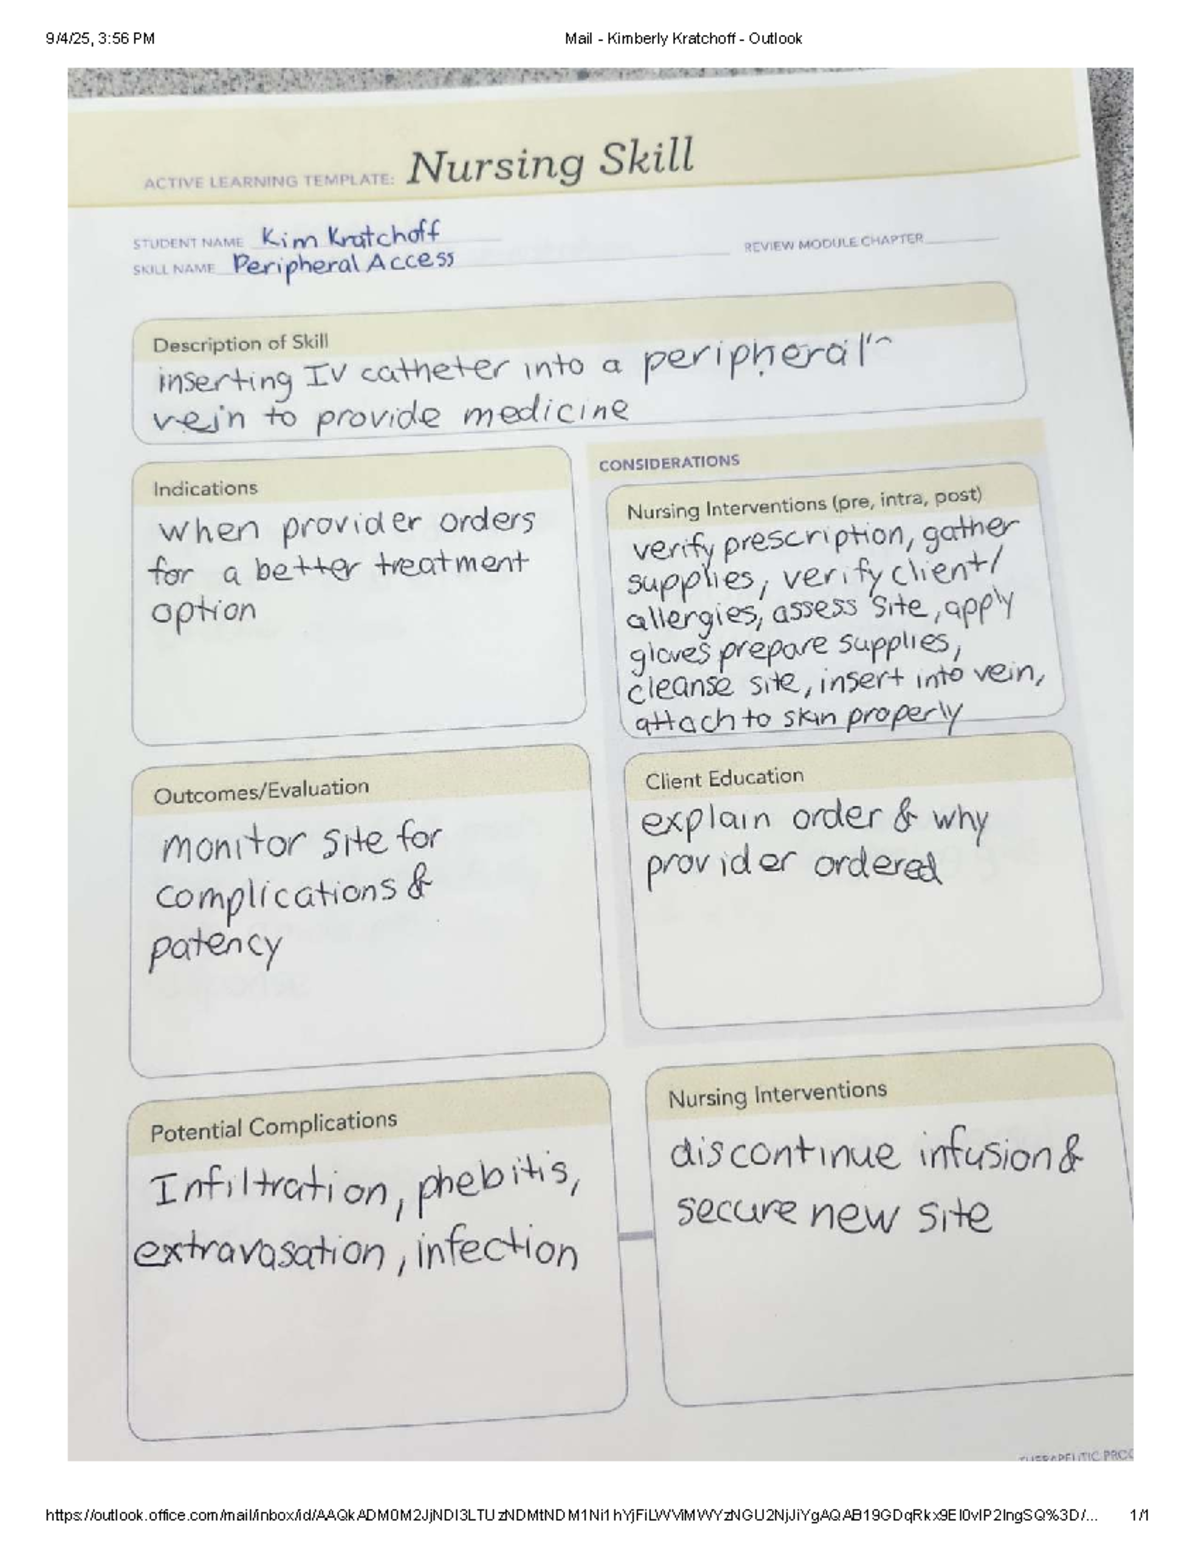 9/4/25, 3:56 PM
Mail - Kimberly Kratchoff - Outlook
ACTIVE LEARNING TEMPLATE: Nursing Skill
STUDENT NAME Kim Kratchoff
SKILL NAME Peripheral Access
REVIEW MODULE CHAPTER
Description of Skill
inserting IV catheter into a peripheral
vein to provide medicine
Indications
when provider orders
for a better treatment
option
CONSIDERATIONS
Nursing Interventions (pre, intra, post)
verify prescription, gather
supplies, verify client/
allergies, assess site, apply
gloves prepare supplies,
cleanse site, insert into vein,
attach to skin properly
Outcomes/Evaluation
monitor site for
complications &
patency
Client Education
explain order & why
provider ordered
Potential Complications
Infiltration, phebitis,
extravasation, infection
Nursing Interventions
discontinue infusion &
secure new site
THERAPEUTIC PROC
1/1